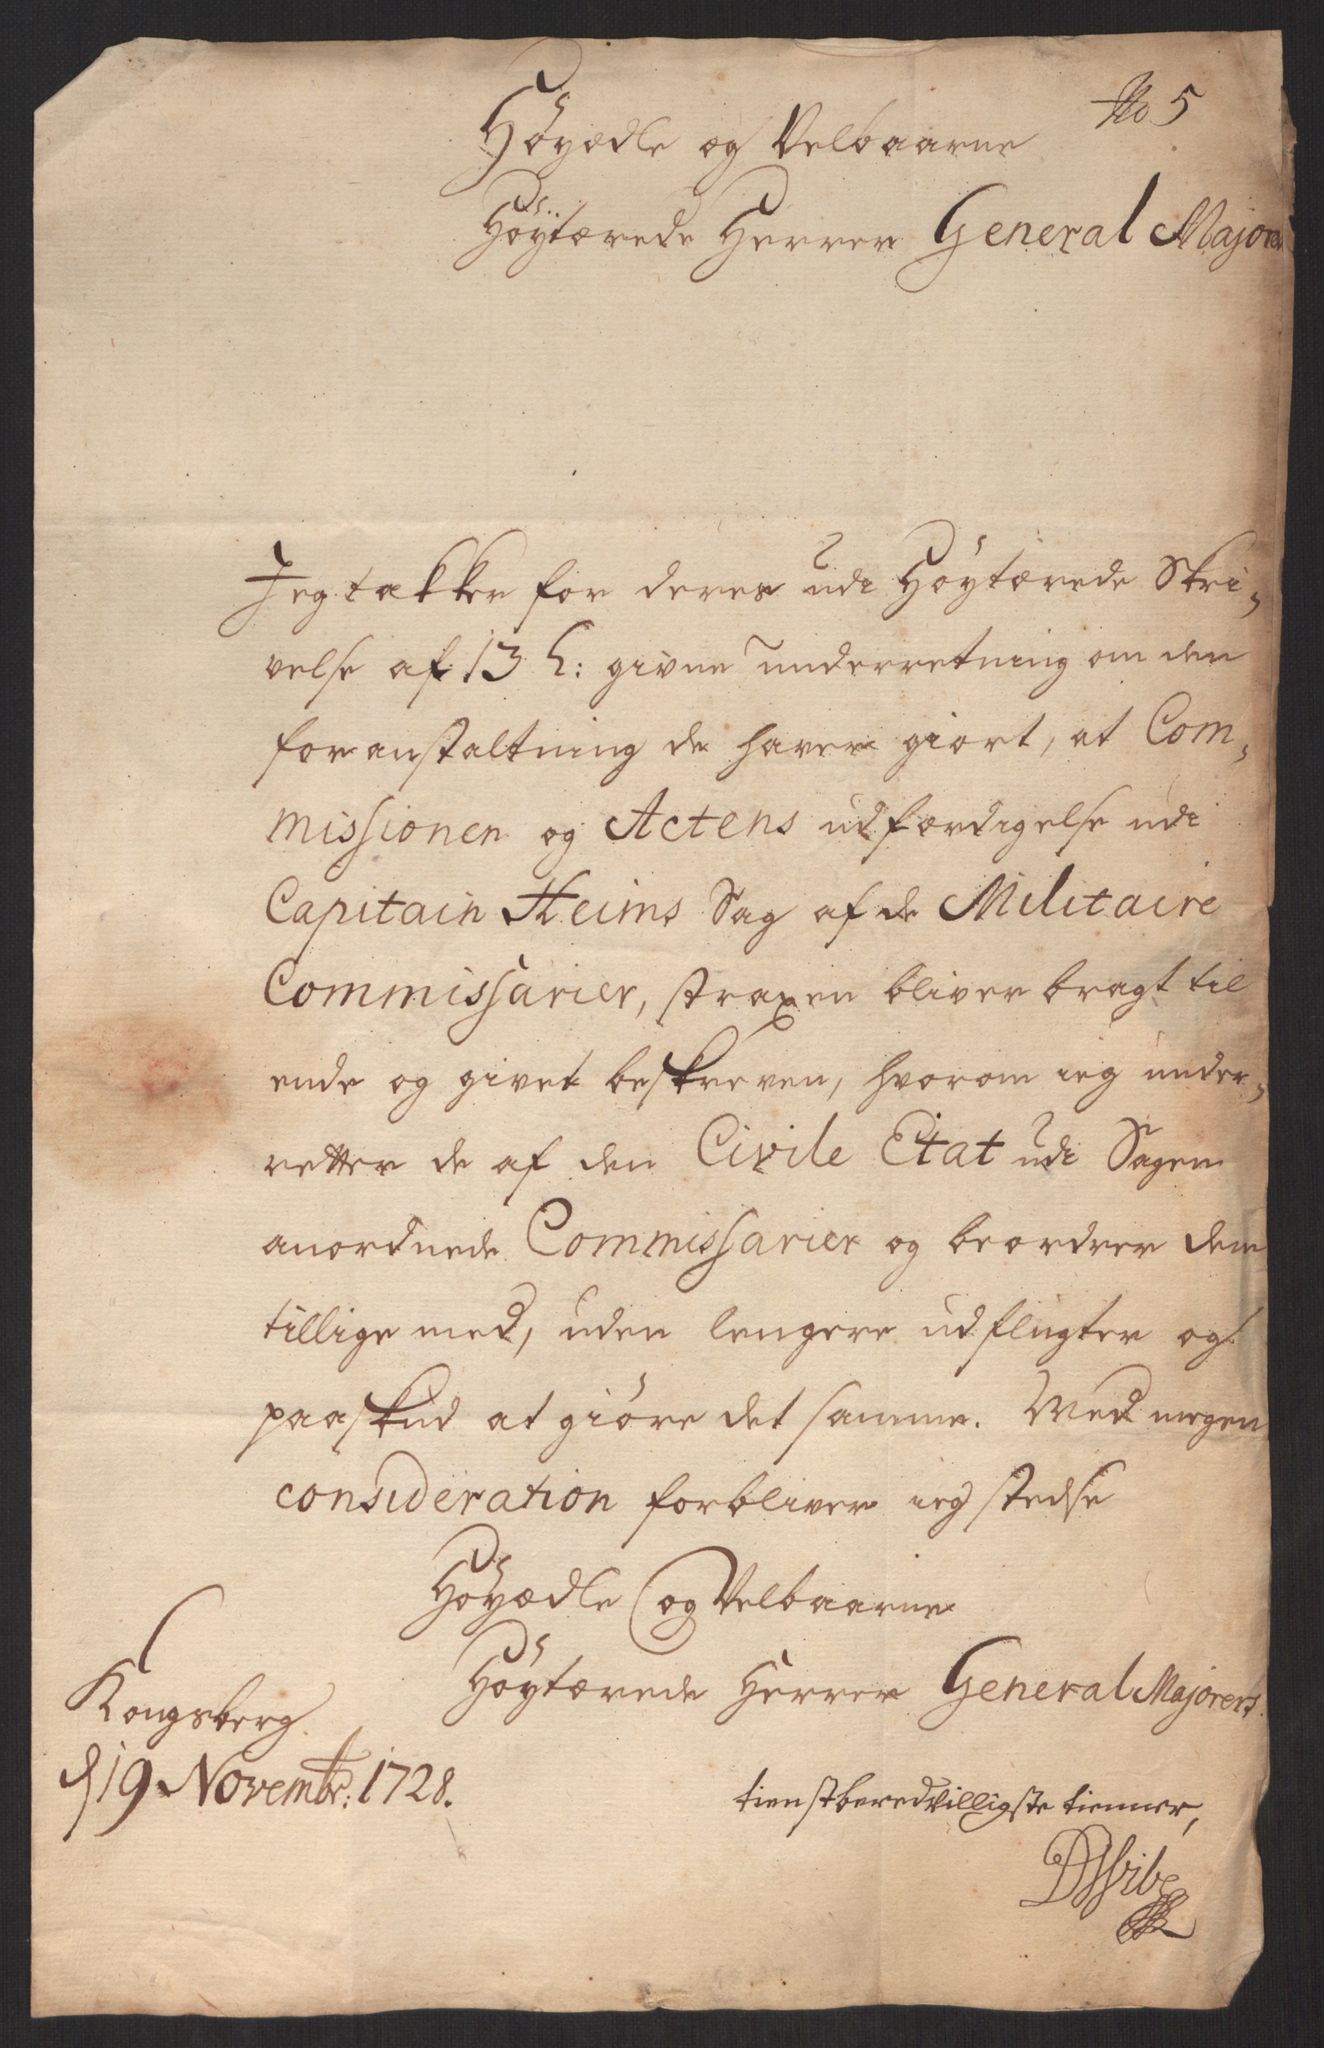 No 5
Höyædle og Velbaarne
Höytærede Herrer General Major
Jeg takker for deres udi Höytærede Skri-
velse af 13 h: givne underretning om den
foranstaltning de haver giort, at Com-
missionen og Actens udfærdigelse udi
Capitain Heims Sag af de Militaire
Commissarier, straxen bliver bragt til
ende og givet beskreven, hvorom ieg under-
retter de af den Civile Etat udi Sagen
anordnede Commissarier og beordrer dem
tillige med, uden lengere udflugter og
paaskud at giöre det samme. Med megen
consideration forbliver ieg stedse
Höyædle og Velbaarne
Höytærede Herrer General Majorers
Kongsberg
d 19 Novembr: 1728.
tienstberedvilligste tienner,
DVibe